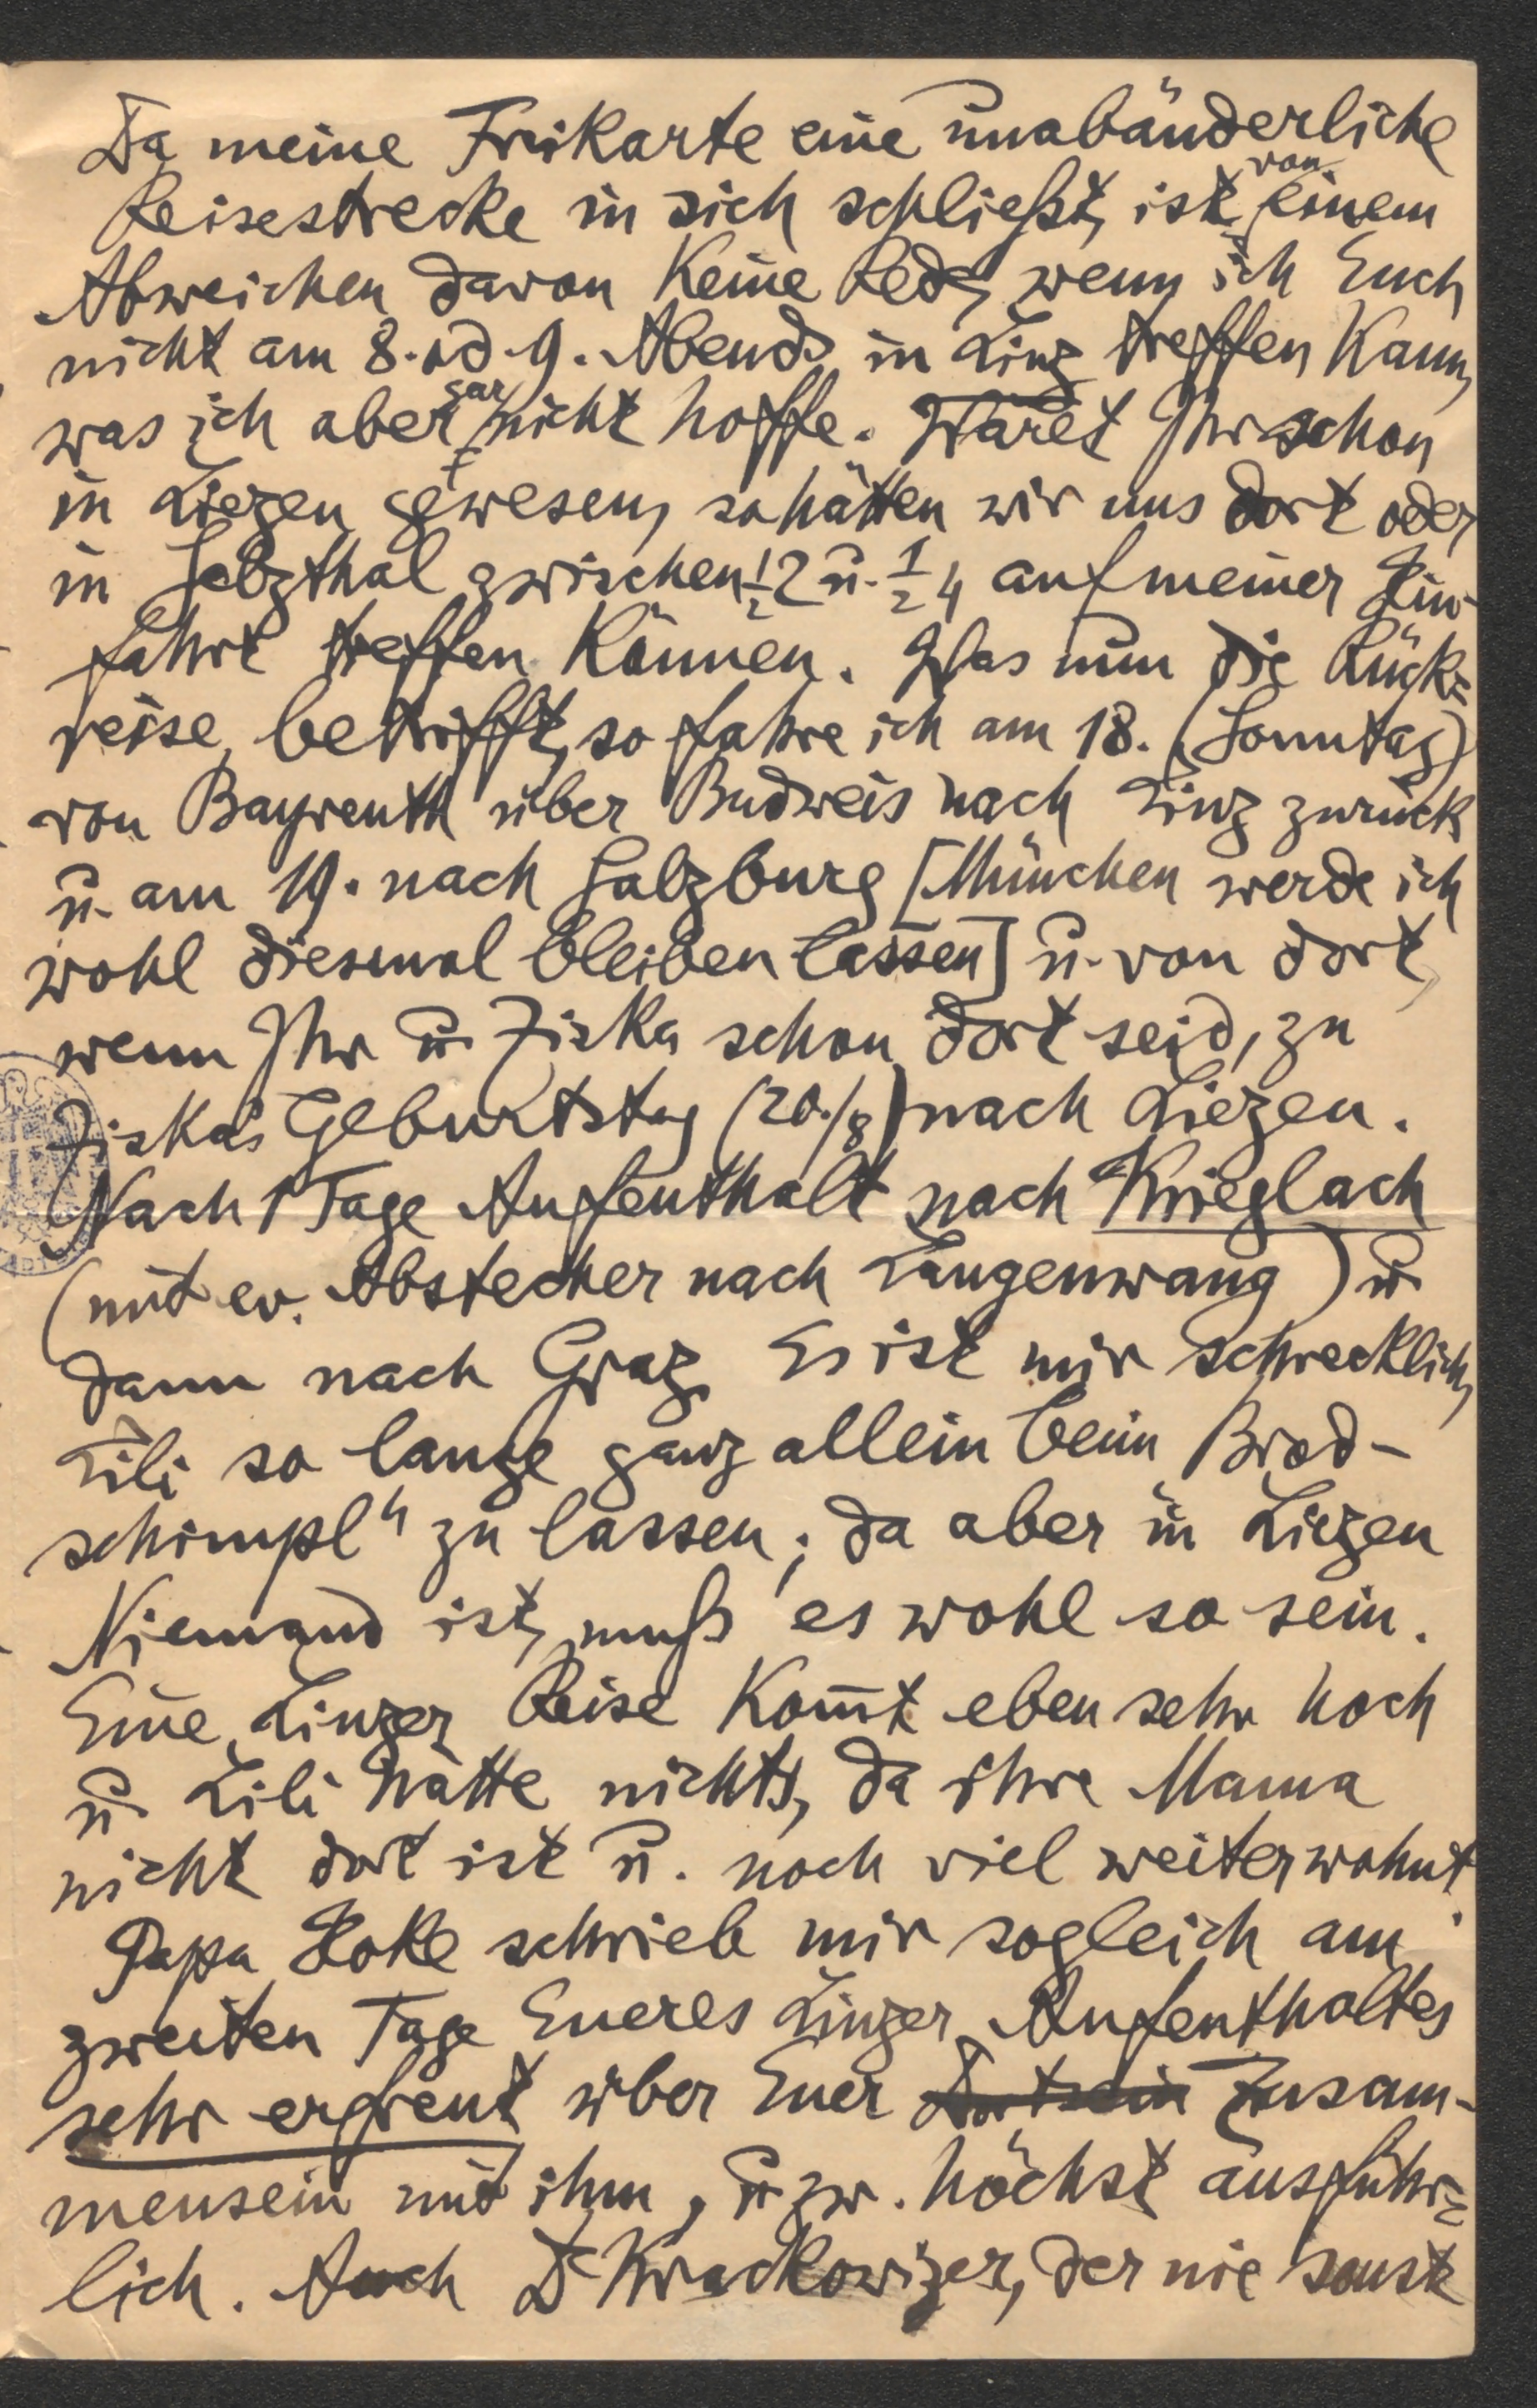 Da meine Freikarte eine unabänderliche
Reisestrecke in sich schließt, ist von einem
Abweichen davon keine Rede, wenn ich Euch
nicht am 8. od. 9. Abends in Linz treffen kann,
was ich aber gar nicht hoffe. Wäret Ihr schon
in Liezen gewesen, so hätten wir uns dort oder
in Selzthal zwischen ½2 u. ½4 auf meiner Hin-
fahrt treffen können. Was nun die Rück=
reise betrifft, so fahre ich am 18. (Sonntag)
von Bayreuth über Budweis nach Linz zurück
u. am 19. nach Salzburg [München werde ich
wohl diesmal bleiben lassen] u. von dort,
wenn Ihr u. Ziska schon dort seid, zu
Ziska's Geburtstag (20./8) nach Liezen.
Nach 1 Tage Aufenthalt nach Krieglach
(mit ev. Abstecher nach Langenwang) u.
dann nach Graz. Es ist mir schrecklich,
Lili so lange ganz allein beim Brod-
schimpl" zu lassen; da aber in Liezen
Niemand ist, muß es wohl so sein.
Eine Linzer Reise kom̅t eben sehr hoch
u. Lili hätte nichts, da ihre Mama
nicht dort ist u. noch viel weiter wohnt.
Papa Hoke schrieb mir sogleich am
zweiten Tage Eueres Linzer Aufenthaltes
sehr erfreut über Euer Dortsein Zusam-
mensein mit ihm, u. zw. höchst ausführ=
lich. Auch Dr Krackowizer, der nie sonst